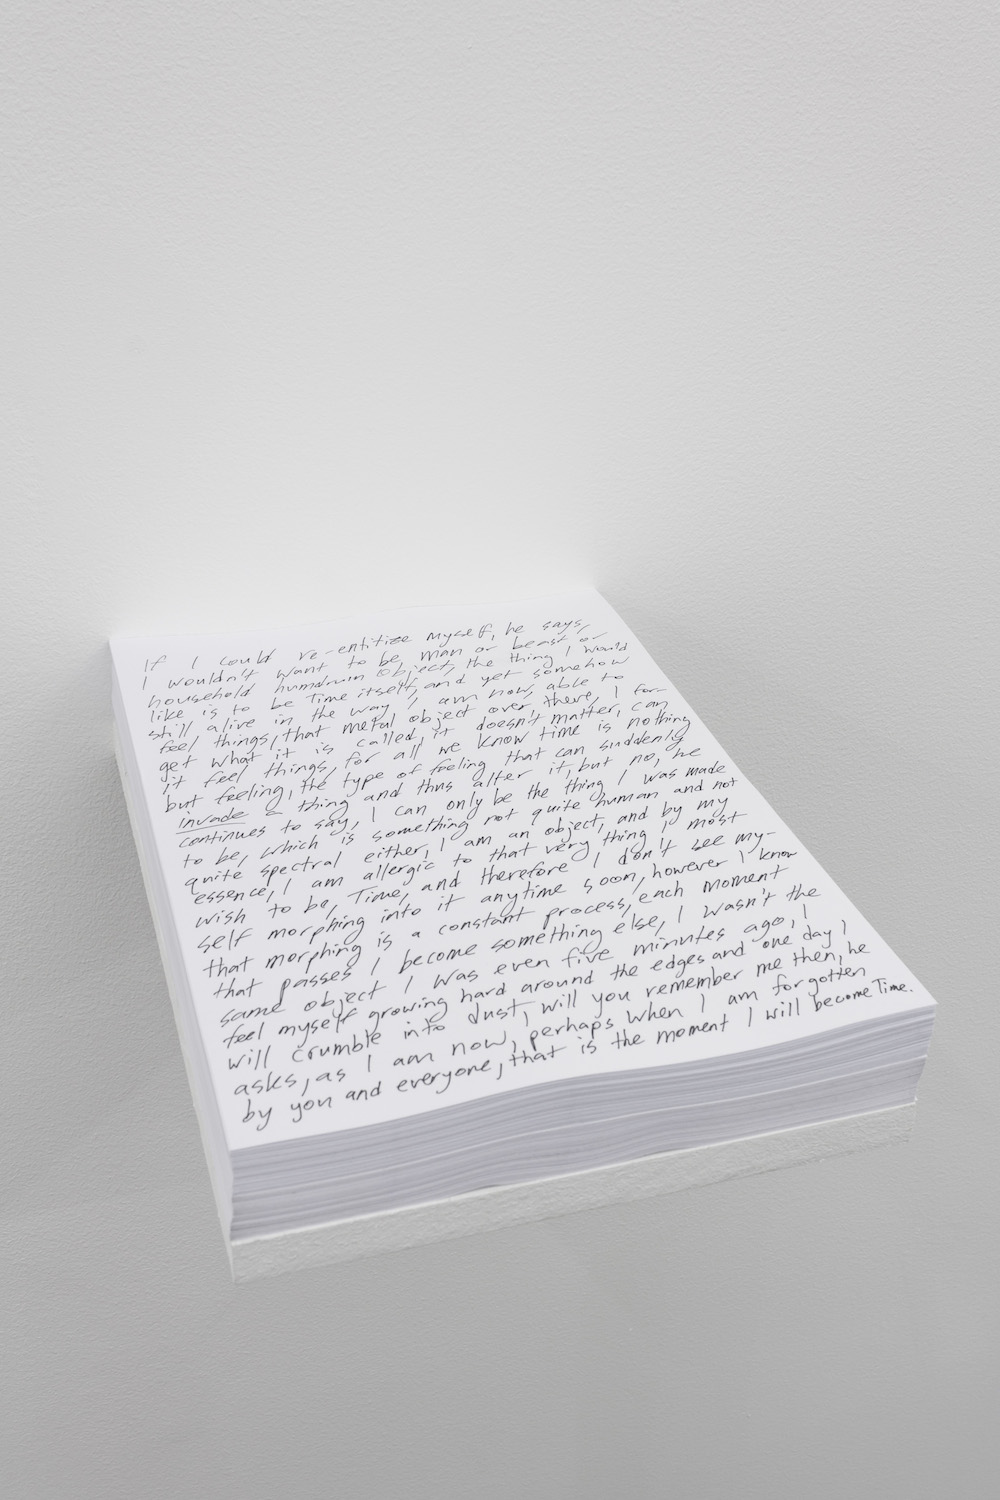 If I could re-entitize myself, he says,
I wouldn't want to be man or beast or
household humdrum object, the thing I would
like is to be Time itself, and yet somehow
still alive in the way I am now, able to
feel things, that metal object over there, I for-
get what it is called, it doesn't matter, can
it feel things, for all we know time is nothing
but feeling, the type of feeling that can suddenly
invade a thing and thus alter it, but no, he
continues to say, I can only be the thing I was made
to be, which is something not quite human and not
quite spectral either, I am an object, and by my
essence, I am allergic to that very thing I most
wish to be, Time, and therefore I don't see my-
self morphing into it anytime soon, however I know
that morphing is a constant process, each moment
that passes I become something else, I wasn't the
same object I was even five minutes ago, I
feel myself growing hard around the edges and one day I
will crumble into dust, will you remember me then, he
asks, as I am now, perhaps when I am forgotten
by you and everyone, that is the moment I will become Time.